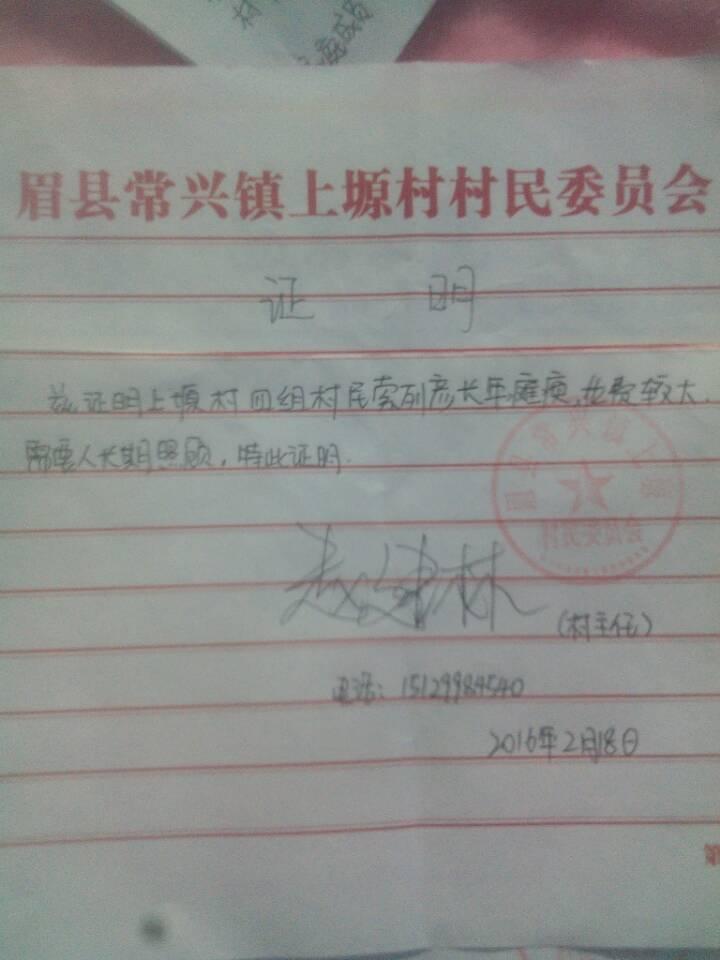 眉县常兴镇上塬村村民委员会
证 明
兹证明上塬村四组村民索列彦长年瘫痪,花费较大,
需要人长期照顾,特此证明.
眉县常兴镇上塬
村民委员会
赵建林
(村主任)
电话: 15129984540
2016年2月18日
第